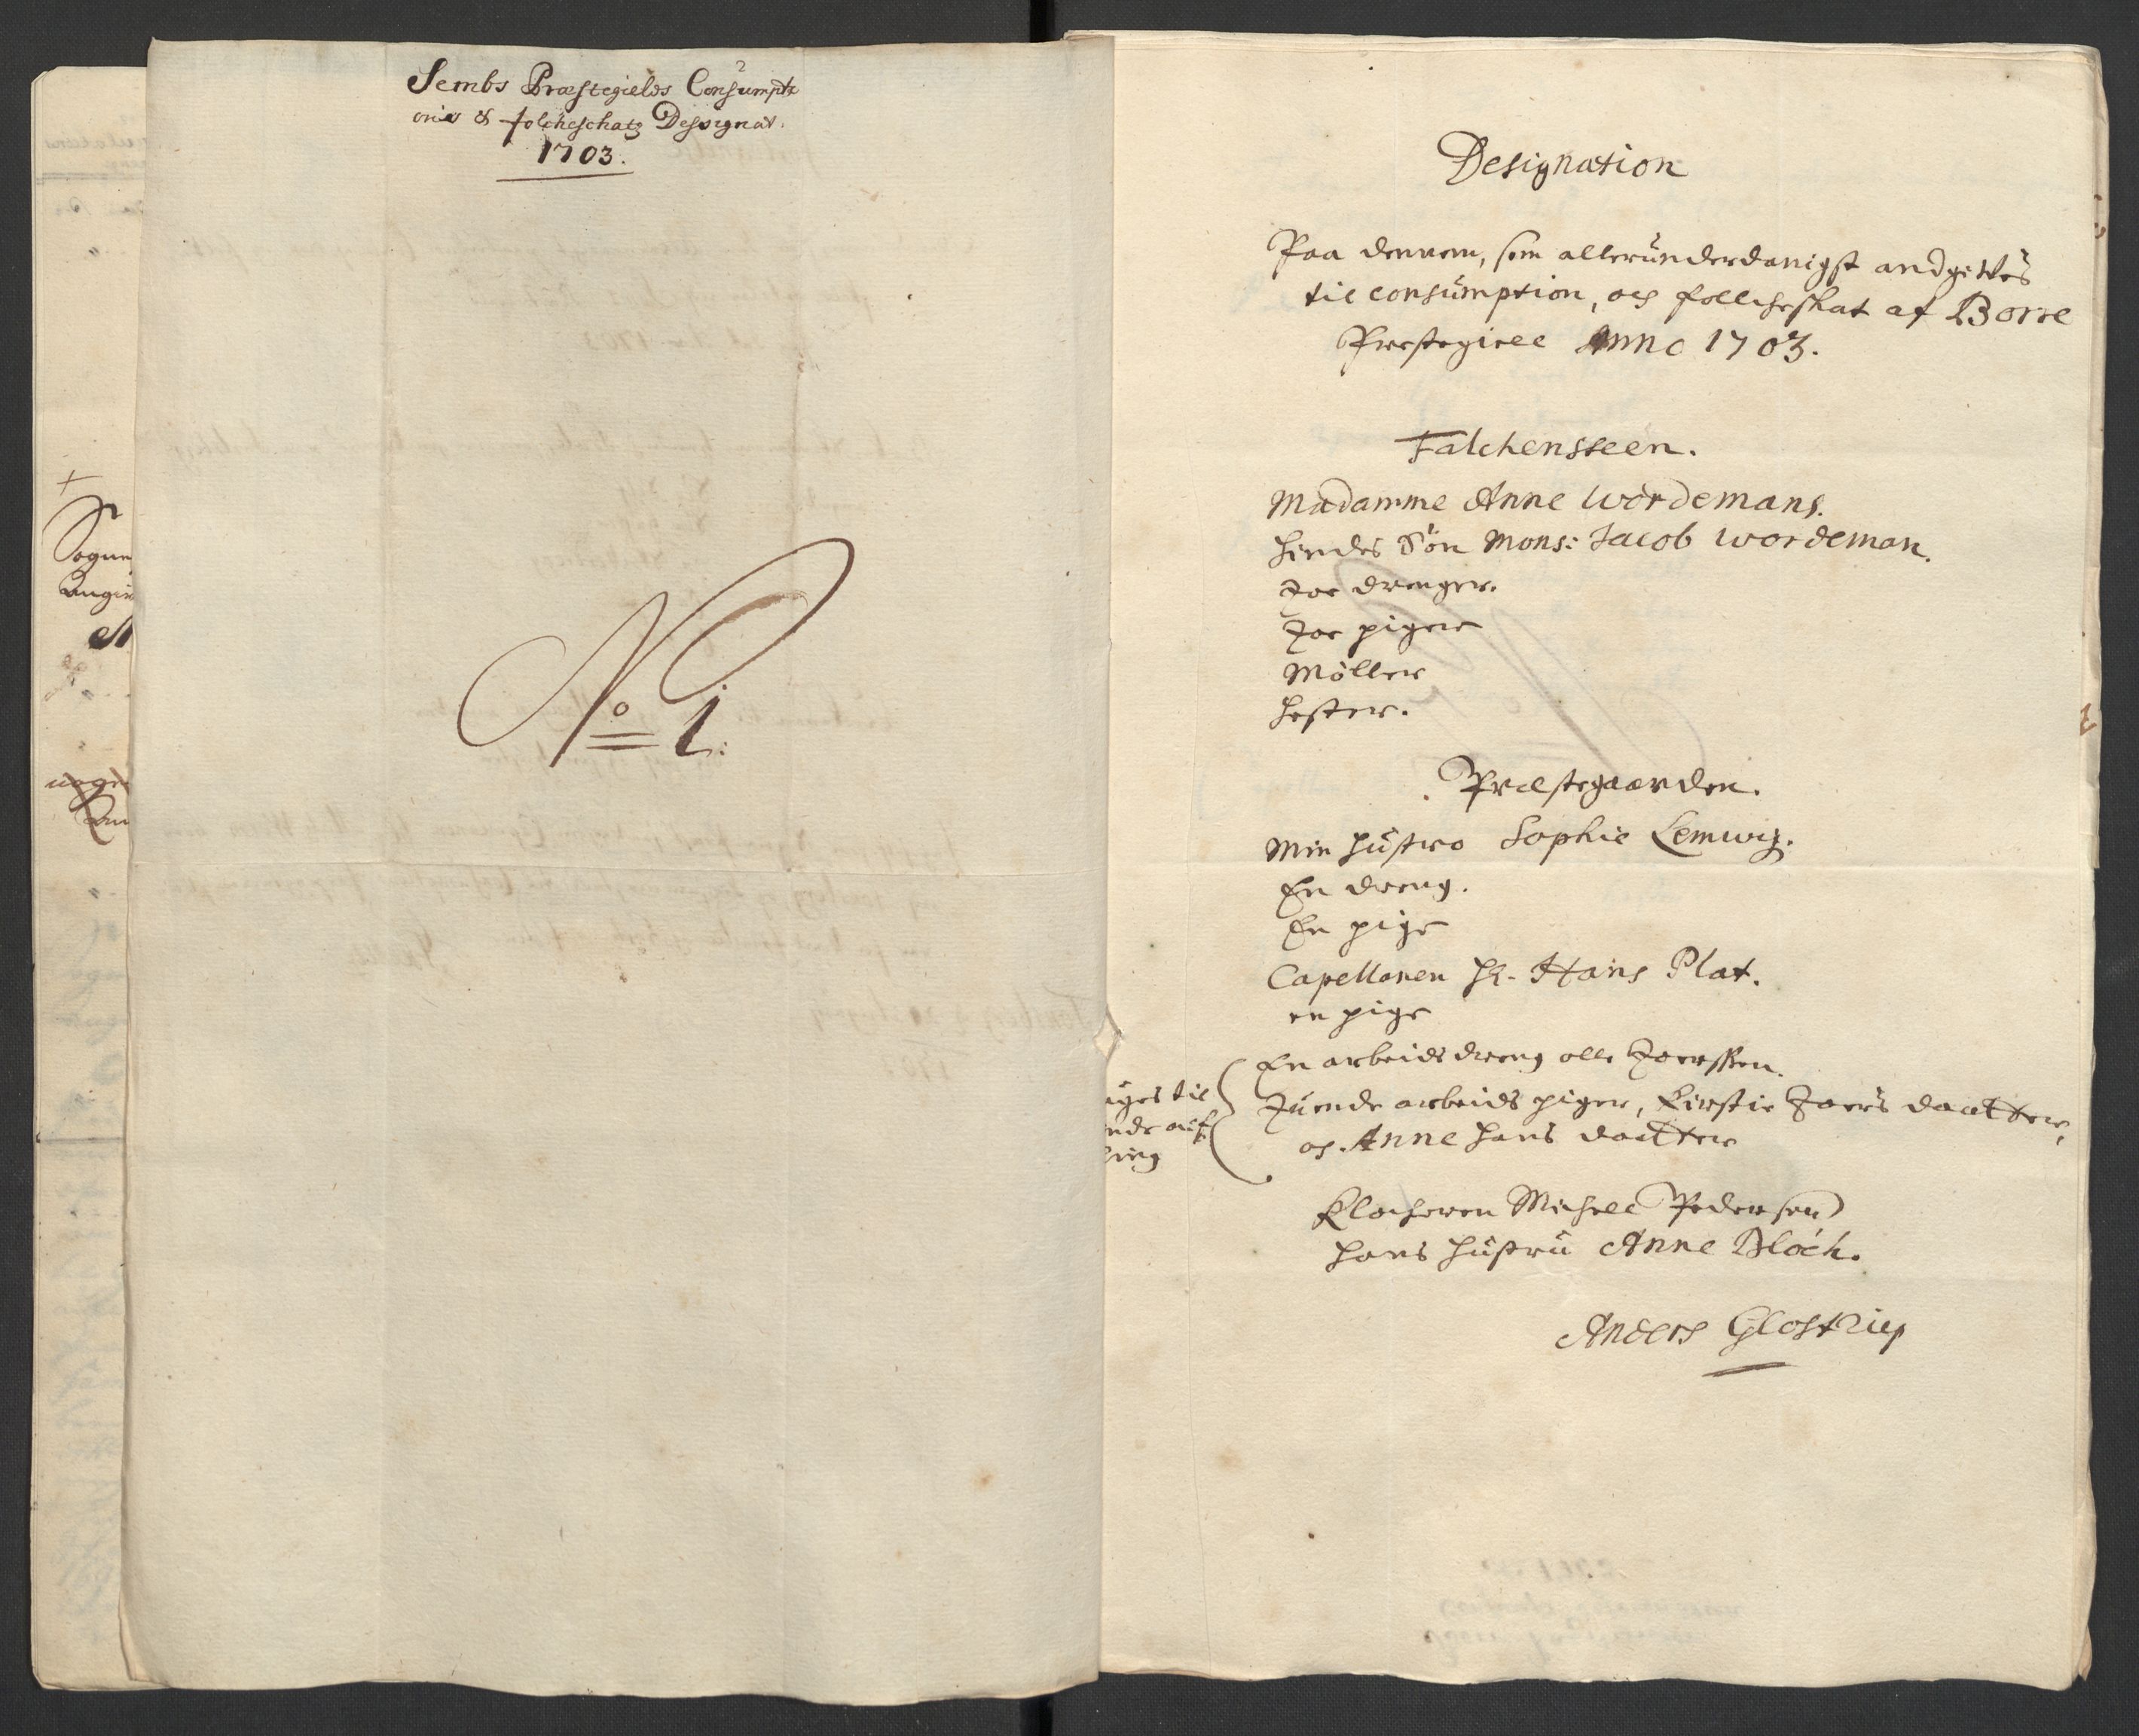 Sembs Præstegields Consumpti
onis & folcheschatz Designat.
1703.
No 1:
Designation
Paa dennem, som allerunderdanigst andgifves
til consumption, och follcheskat af Borre
Prestegield Anno 1703.
Falchensteen.
Madamme Anne Wordemans.
hindes Søn Mons: Jacob Wordeman.
toe drenger.
toe piger
Møller
hester.
Præstegaarden.
Min hustro Sophie Lemwig.
En dreng.
En pige
Capellanen Hr. Hans Plat.
en pige
En arbeids dreng olle
Tuende arbeids piger, Kirstie daatter,
oc Anne Hans daatter
Klocheren Michell Pedersen
hans hustru Anne Bloch.
Anders Glostrup